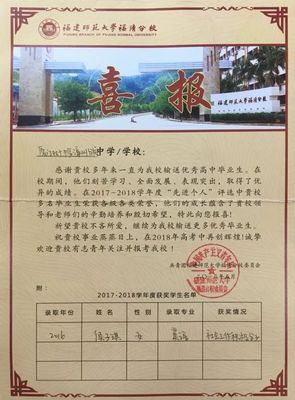 福建师范大学福清分校
FUQING BRANCH OF FUJIAN NORMAL UNIVERSITY
喜报
中学/学校:
感谢贵校多年来一直为我校输送优秀高中毕业生。在
校期间，他们刻苦学习、全面发展、表现突出，取得了优
异的成绩。在2017-2018学年度"先进个人"评选中贵校
多名毕业生荣获各级各类荣誉，他们的成长蕴含了贵校领
导和老师们的辛勤培养和殷切希望，特此向您报喜！
祈望贵校不吝所爱，继续为我校输送更多优秀毕业生。
祝贵校事业蒸蒸日上，在2018年高考中再创辉煌！诚挚
欢迎贵校有志青年关注并报考我校！
共青团福建师范大学福清分校委员会
附:
2017-2018学年度获奖学生名单
录取年份 姓名 性别 录取专业 获奖情况
2016 女 社会工作积极分子